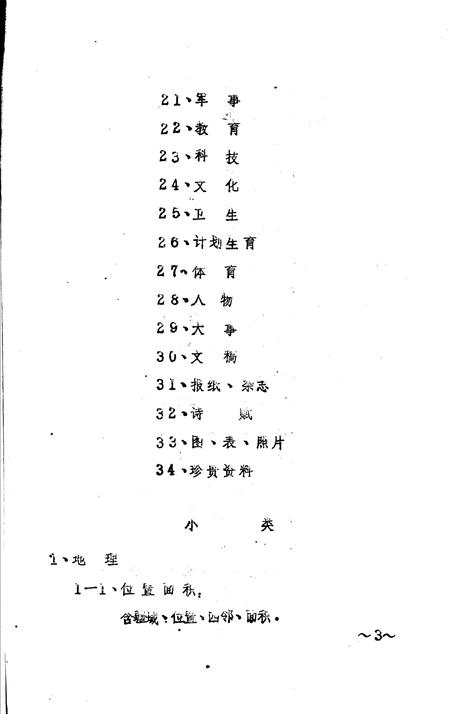 21、军 事
22、教 育
23、科 技
24、文 化
25、卫 生
26、计划生育
27、体 育
28、人 物
29、大 事
30、文 稿
31、报纸、杂志
32、诗 赋
33、图、表、照片
34、珍贵资料
小 类
1、地 理
1—1、位置面积:
含疆域、位置、四邻、面积.
～3～